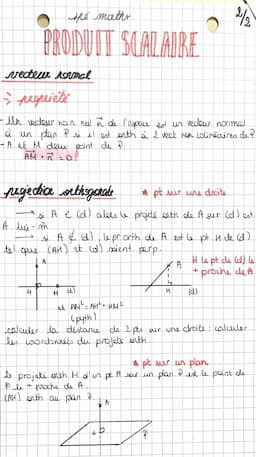 spé maths
2/2
PRODUIT SCALAIRE
vecteur normal
→ propriété
- Un vecteur non nul n de l'espace est un vecteur normal
à un plan P si il est orth à 2 vect non colinéaires de P
- A et M deux point de P.
AM · n = 0
projection orthogonale
* pt sur une droite
→ si A ∈ (d) alors le projeté orth de A sur (d) est
A lui-m
→ si A ∉ (d), le pr orth de A est le pt H de (d)
tel que (AH) et (d) soient perp.
H le pt de (d) le
+ proche de A
A
H
M
(d)
A
H
(d)
et AM² = AH² + HM²
(pyth)
calculer la distance de 2 pts sur une droite : calculer
les coordonnées du projeté orth.
* pt sur un plan
le projeté orth H d'un pt A sur un plan P est le point de
P le + proche de A.
(AH) orth au plan P.
A
H
P